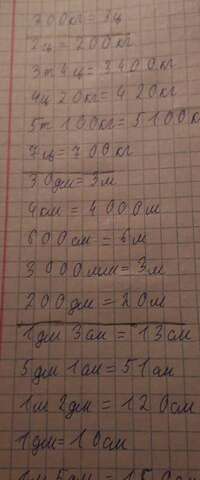 300кг = 3ц
2ц = 200кг
3т 4ц = 3400кг
4ц 20кг = 420кг
5т 100кг = 5100к
7ц = 700кг
30дм = 3м
4км = 4000м
600см = 6м
3000мм = 3м
200дм = 20м
1дм 3см = 13см
5дм 1см = 51см
1м 2дм = 120см
1дм = 10см